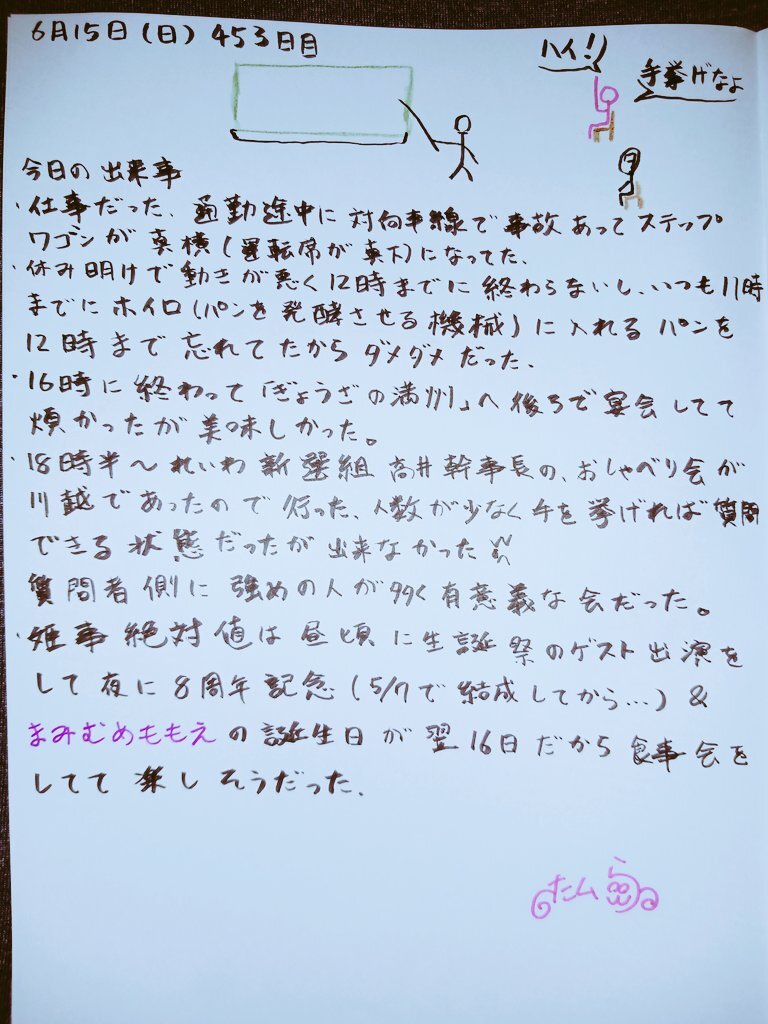 6月15日(日) 453日目
ハイ!
手挙げなよ
今日の出来事
・仕事だった、通勤途中に対向車線で事故あってステップ
ワゴンが真横(運転席が真下)になってた、
・休み明けで動きが悪く12時までに終わらないし、いつも11時
までにホイロ(パンを発酵させる機械)に入れるパンを
12時まで忘れてたからダメダメだった、
・16時に終わって「ぎょうざの満州」へ後ろで宴会してて
煩かったが美味しかった。
・18時半〜れいわ新選組高井幹事長の、おしゃべり会が
川越であったので行った、人数が少なく手を挙げれば質問
できる状態だったが出来なかった
質問者側に強めの人が多く有意義な会だった。
・雅事絶対値は昼頃に生誕祭のゲスト出演を
して夜に8周年記念(5/7で結成してから…)&
まみむめももえの誕生日が翌16日だから食事会を
してて楽しそうだった、
たム